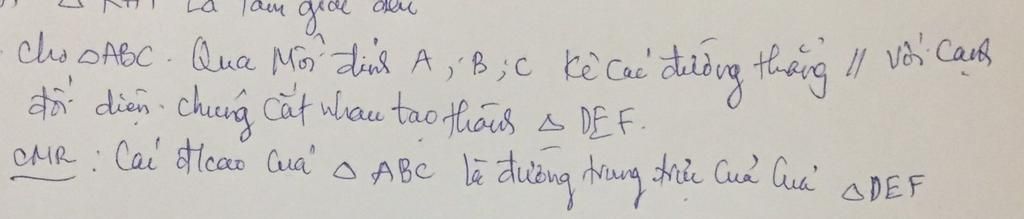 Δ là tam giác đều
Cho ΔABC. Qua Mỗi đỉnh A; B; C kẻ các đường thẳng // với cạnh
đối diện. chúng cắt nhau tạo thành Δ DEF.
CMR: Các đcao của Δ ABC là đường trung trực của của ΔDEF